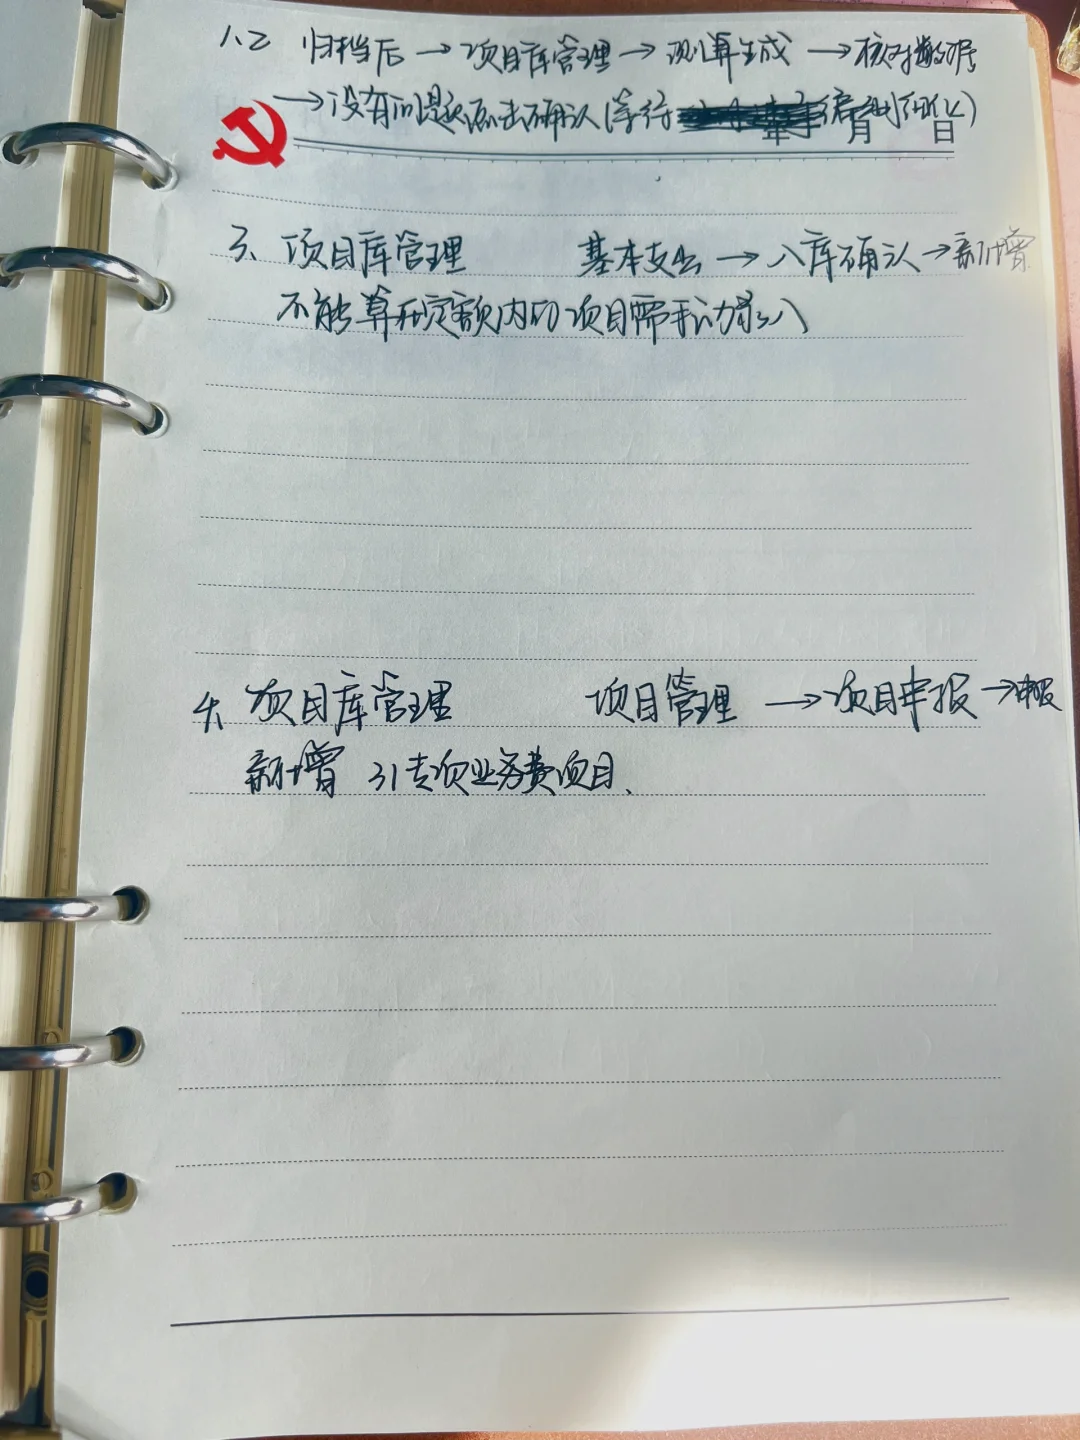 1、2 归档后→项目库管理→测算生成→核对数据
→没有问题点击确认(等行 编制细化)
年 月 日
3、项目库管理 基本支出→入库确认→新增
不能算在定额内的项目需手动录入
4、项目库管理 项目管理→项目申报→申报
新增 31专项业务费项目、